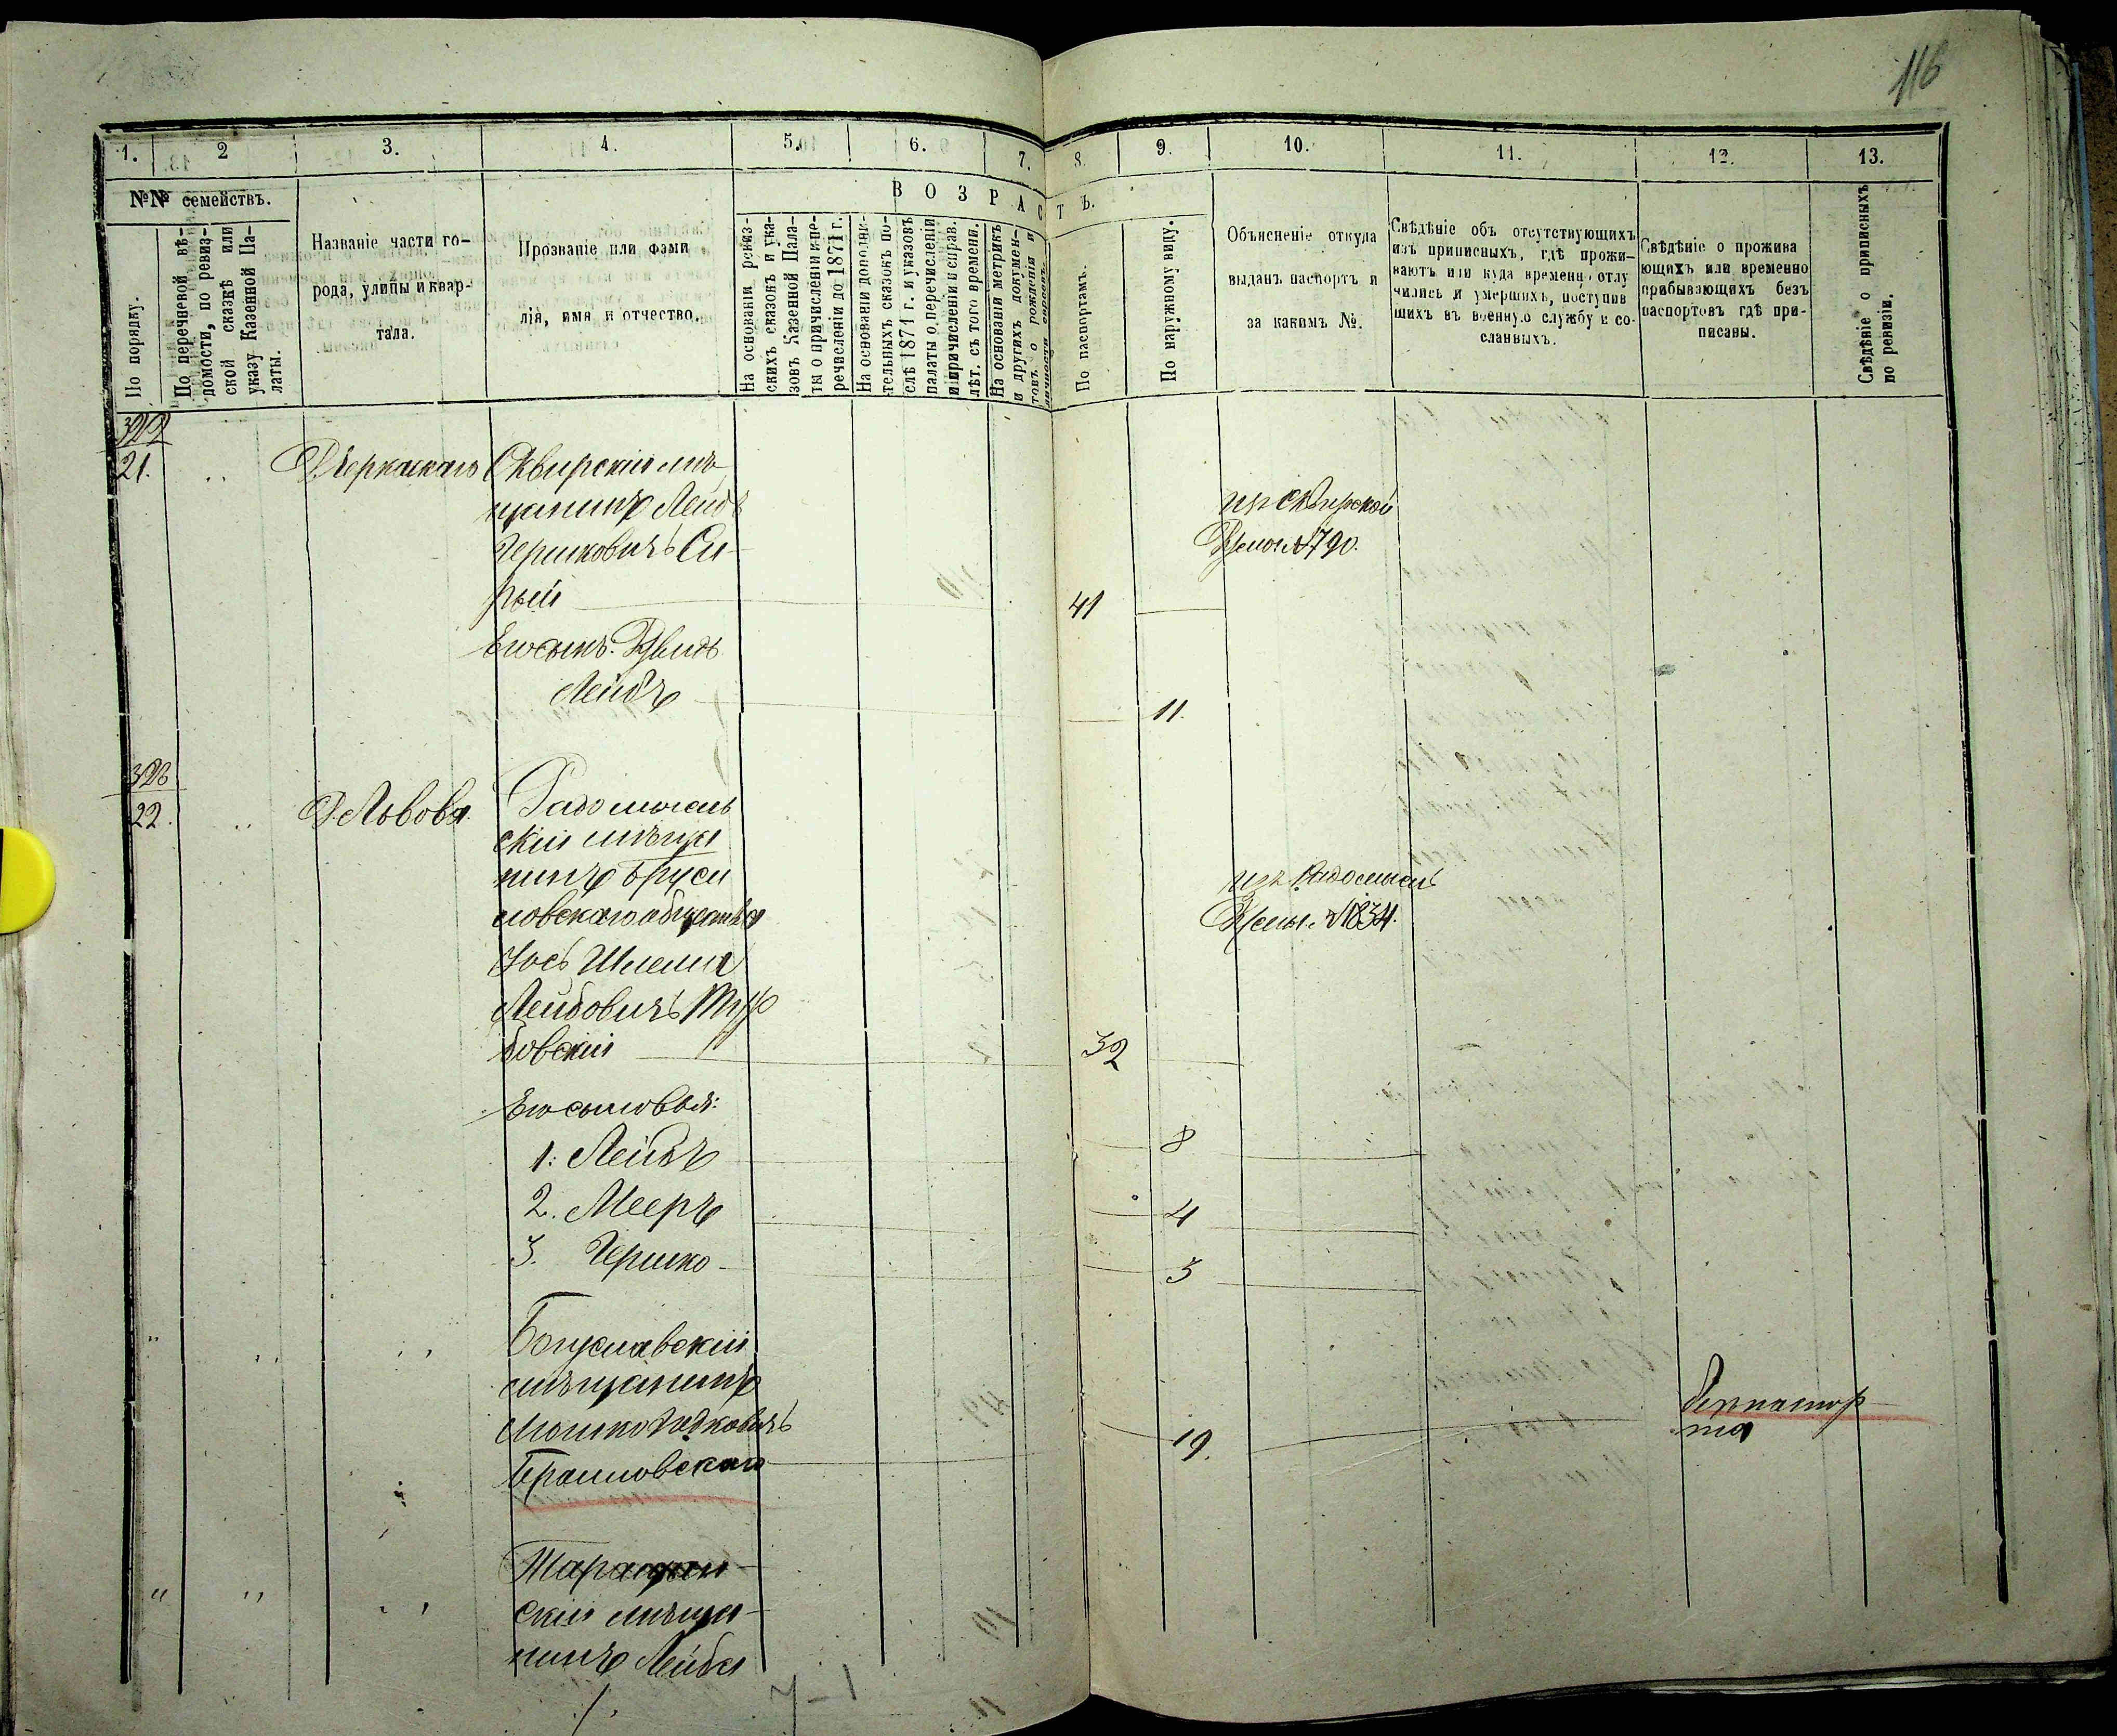 116
1. 2 3. 4. 5. 6. 7. 8. 9. 10. 11. 12. 13.
№№ семействъ.
По порядку.
По перечневой вѣ-
домости, по ревиз-
ской сказкѣ или
указу Казенной Па-
латы.
Названіе части го-
рода, улицы и квар-
тала.
Прозваніе или фами
лія, имя и отчество.
ВОЗРАСТЪ.
На основаніи ревиз-
скихъ сказокъ и ука-
зовъ Казенной Пала-
ты о причисленіи и пе-
речисленіи до 1871 г.
На основаніи дополни-
тельныхъ сказокъ по-
слѣ 1871 г. и указовъ
палаты о перечисленіи
и причисленіи и справ.
лѣт. съ того времени.
На основаніи метрикъ
и другихъ докумен-
товъ о рожденіи и
По паспортамъ.
По наружному виду.
Объясненіе откуда
выданъ паспортъ и
за какимъ №.
Свѣдѣніе объ отсутствующихъ
изъ приписныхъ, гдѣ прожи-
ваютъ или куда временно отлу
чились и умершихъ, поступив
шихъ въ военную службу и со-
сланныхъ.
Свѣдѣніе о прожива
ющихъ или временно
прибывающихъ безъ
паспортовъ гдѣ при-
писаны.
Свѣдѣніе о приписныхъ
по ревизіи.
322
21. Сквирскій мѣ-
щанинъ Лейбъ
Гершковичъ Си-
рый 41
изъ Сквирской
№ 790.
Его сынъ:
Лейбъ 11.
323
22. Д. Львова Радомысль
скій мѣща
нинъ Бруси
ловскаго общества
Іось Шлема
Лейбовичъ
бовскій 32
изъ Радомысль
№ 1834.
Его сыновья:
1. Лейбъ 8
2. Мееръ 4
3. Гершко 3
Богуславскій
мѣщанинъ
Мошко
Браиловскаго 19.
безъ паспор-
та
Таращан-
скій мѣща-
нинъ Лейба
7-1